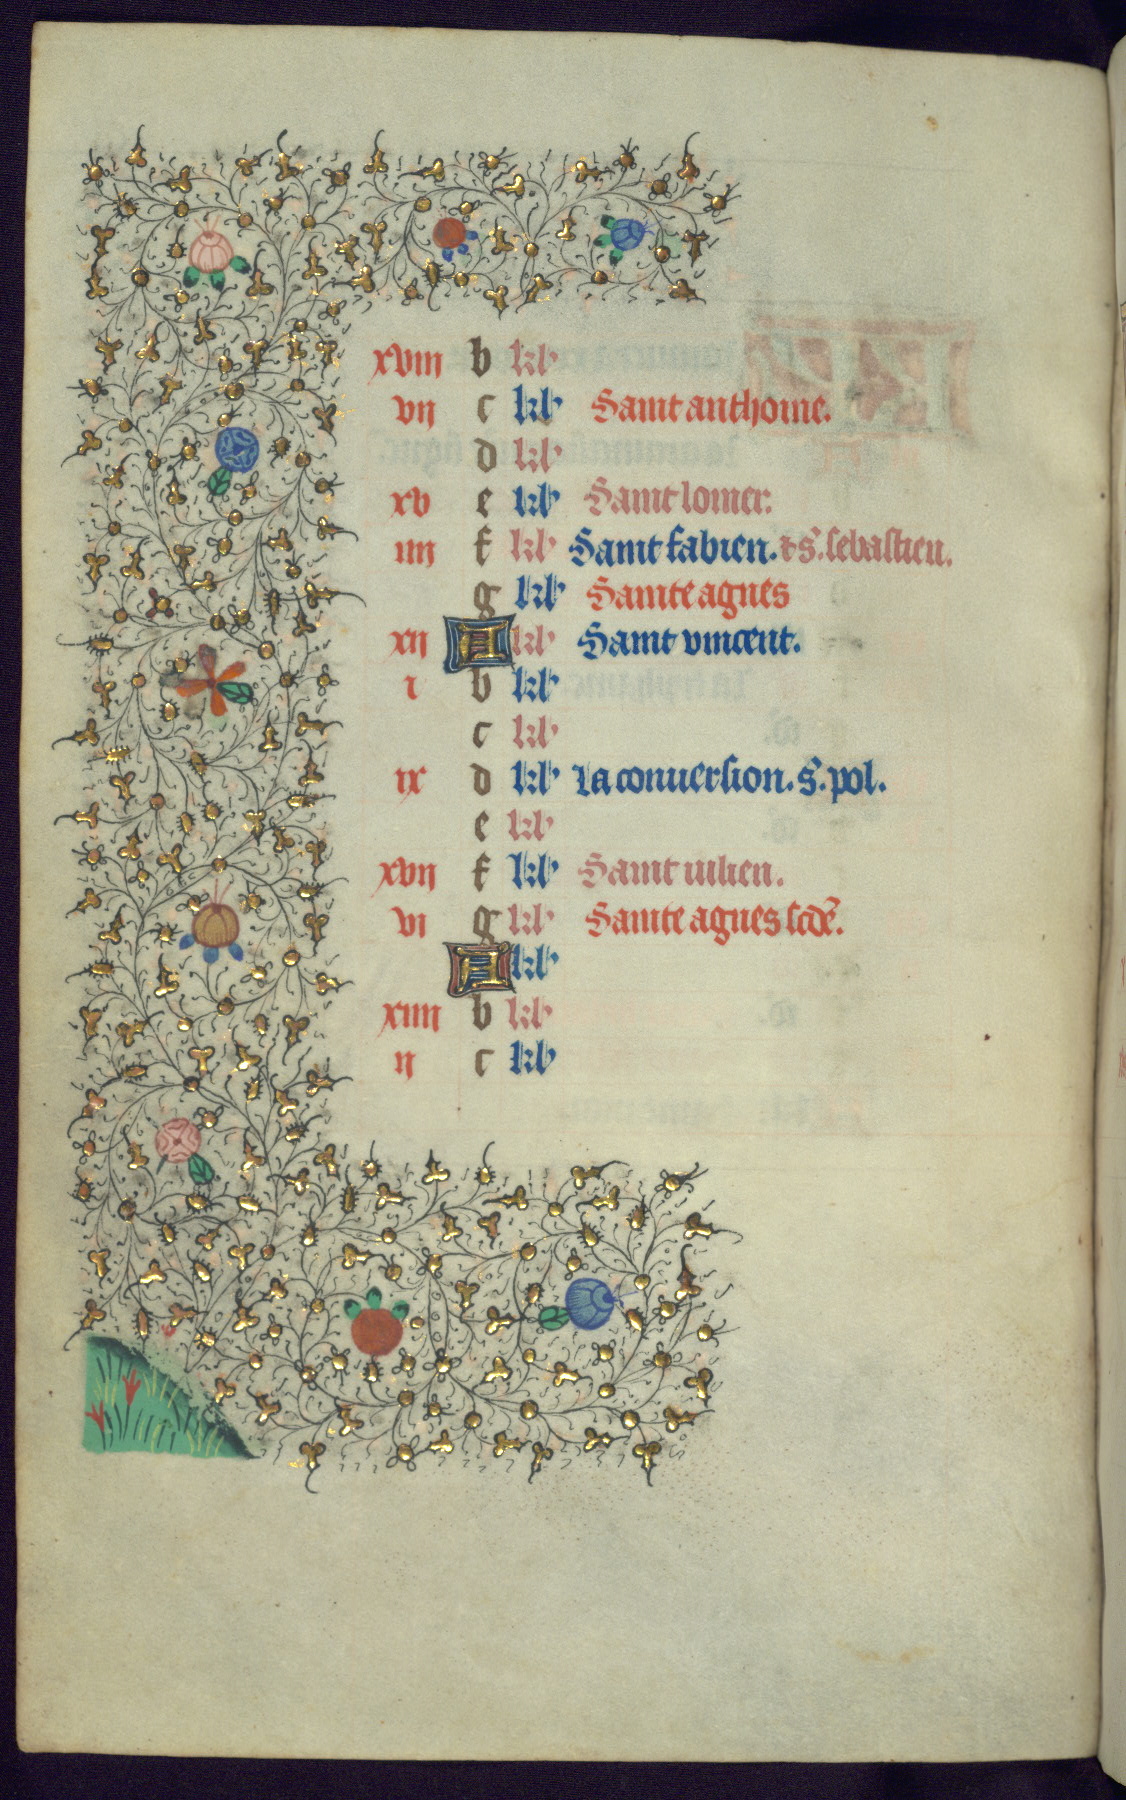 xviii b kł
vii c kł Saint anthoine.
d kł
xv e kł Saint lomer.
iiii f kł Saint fabien. et s. sebastien.
g kł Sainte agnes
xii A kł Saint vincent.
i b kł
c kł
ix d kł La conuersion. s. pol.
e kł
xvii f kł Saint iulien.
vi g kł Sainte agnes scđe.
A kł
xiiii b kł
ii c kł